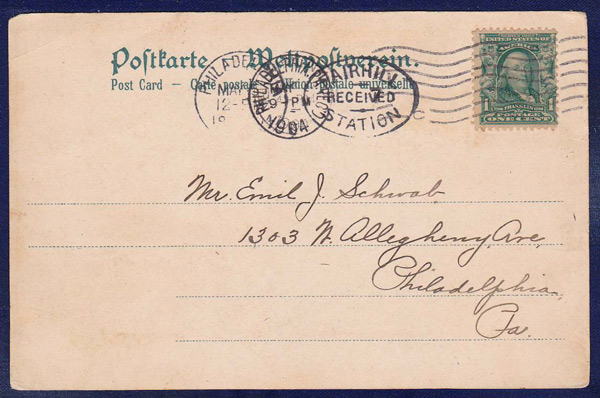 Postkarte — Weltpostverein.
Post Card — Carte postale — Union postale universelle
PHILADEL
MAR
12-
19
9 PM
1904
FAIRHILL
RECEIVED
STATION
UNITED STATES OF
AMERICA
1
FRANKLIN
1
POSTAGE
ONE CENT
Mr. Emil J. Schwab
1303 W. Allegheny Ave,
Philadelphia,
Pa.